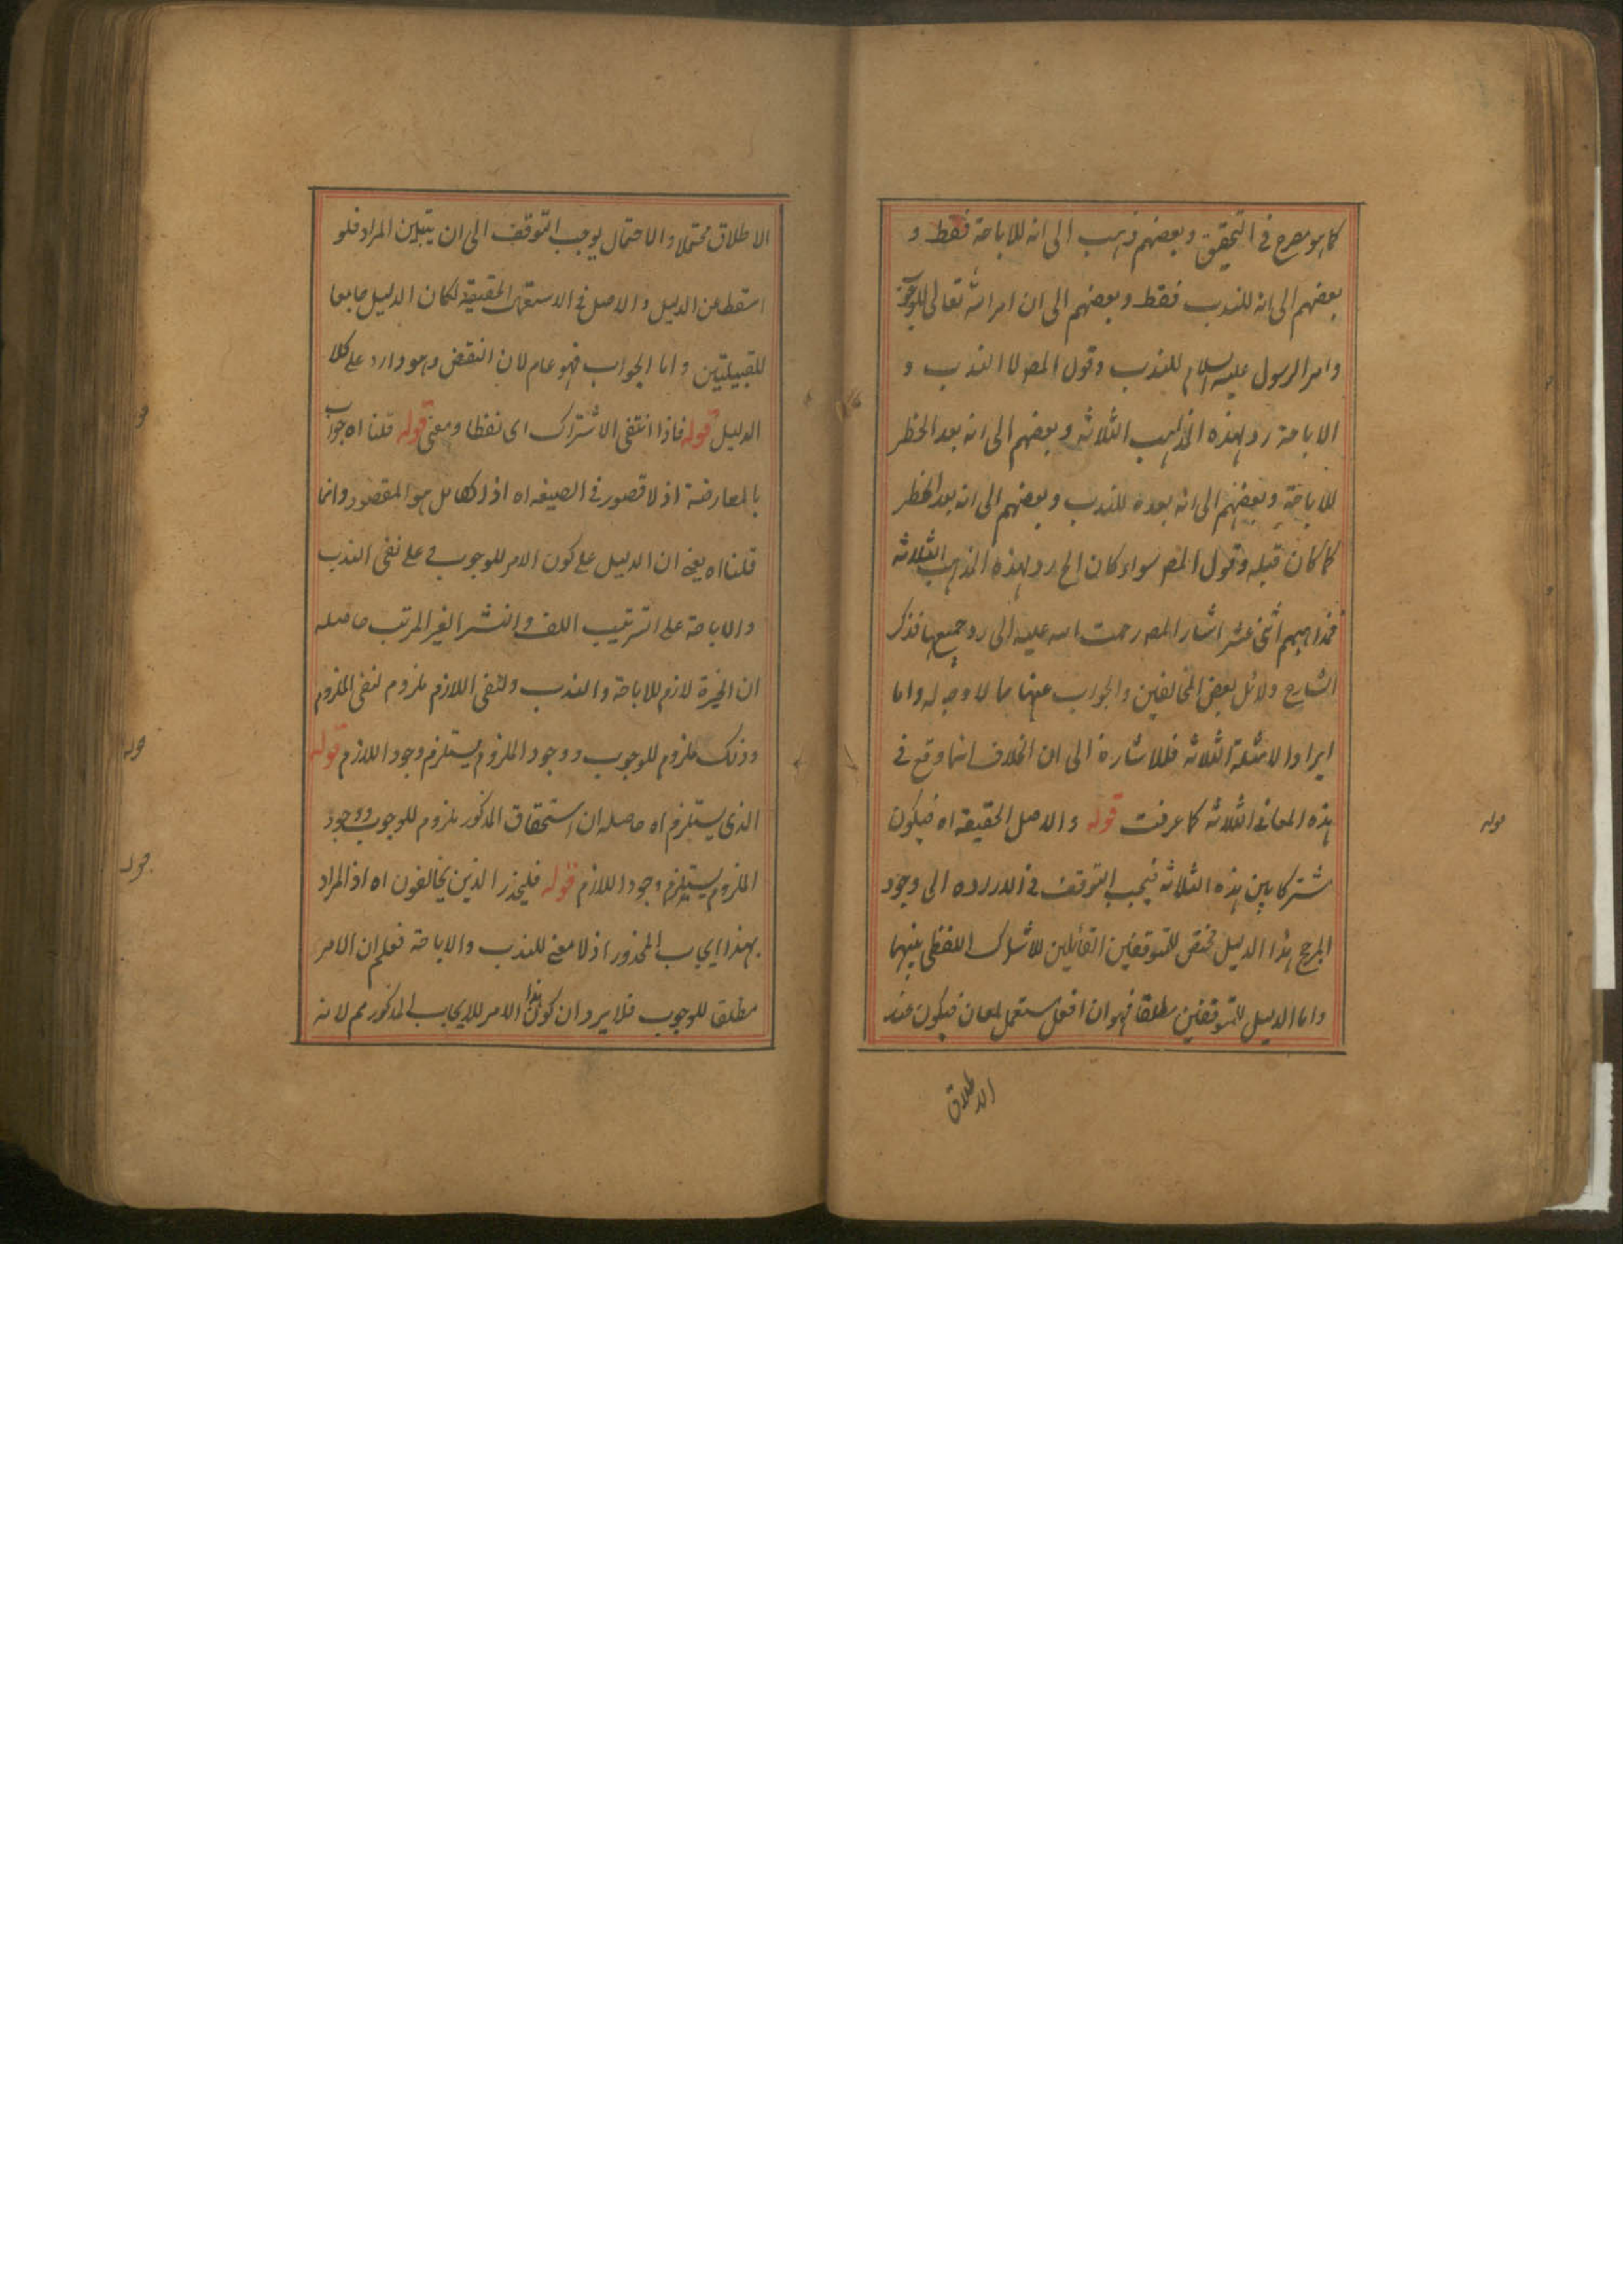 كما هو مصرح في التحقيق وبعضهم ذهب الى انه للاباحة فقط و
بعضهم الى انه للندب فقط وبعضهم الى ان امر الله تعالى للوجوب
وامر الرسول عليه السلام للندب وقول المصـ لا الندب و
الاباحة رد لهذه المذاهب الثلاثة وبعضهم الى انه بعد الحظر
للاباحة وبعضهم الى انه بعده للندب وبعضهم الى انه بعد الحظر
كما كان قبله وقول المصـ سواء كان الخ رد لهذه المذاهب الثلاثة
فمذاهبهم اثنى عشر اشار المصـ رحمت الله عليه الى رد جميعها فذكر
الشارح دلائل بعض المخالفين والجواب عنها مما لا وجه له واما
ايراد الامثلة الثلاثة فللاشارة الى ان الخلاف انما وقع في
هذه المعانى الثلاثة كما عرفت قوله والاصل الحقيقة اه فيكون
مشتركا بين هذه الثلاثة فيجب التوقف في الى وجود
المرجح هذا الدليل مختص للمتوقفين القائلين للاشتراك اللفظى بينهما
واما الدليل للمتوقفين مطلقا فهو ان افعل يستعمل لمعان فيكون عند
الاطلاق
قوله
الاطلاق محتملا والاحتمال يوجب التوقف الى ان يتبين المراد فلو
اسقط من الدليل والاصل في الاستعمال الحقيقة لكان الدليل جامعا
للقبيلتين واما الجواب فهو عام لان النقض وهو وارد على كلا
الدليل قوله فاذا انتفى الاشتراك اى لفظا ومعنى قوله قلنا اه جواب
بالمعارضة اذ لا قصور في الصيغه اه اذ الكامل هو المقصود وانما
قلنا اه يعنى ان الدليل على كون الامر للوجوب في على نفى الندب
والاباحة على الترتيب اللف والنشر الغير المرتب حاصله
ان الخيرة لازم للاباحة والندب ونفى اللازم ملزوم لنفى الملزوم
وذلك ملزوم للوجوب ووجود الملزوم يستلزم وجود اللازم قوله
الذى يستلزم اه حاصله ان استحقاق المذكور ملزوم للوجوب ووجود
الملزوم يستلزم وجود اللازم قوله فليحذر الذين يخالفون اه اذ المراد
بهذا ايجاب المحذور اذ لا معنى للندب والاباحة فعلم ان الامر
مطلقا للوجوب فلا يرد ان كون هذا الامر للايجاب المذكور مم لانه
قوله
قوله